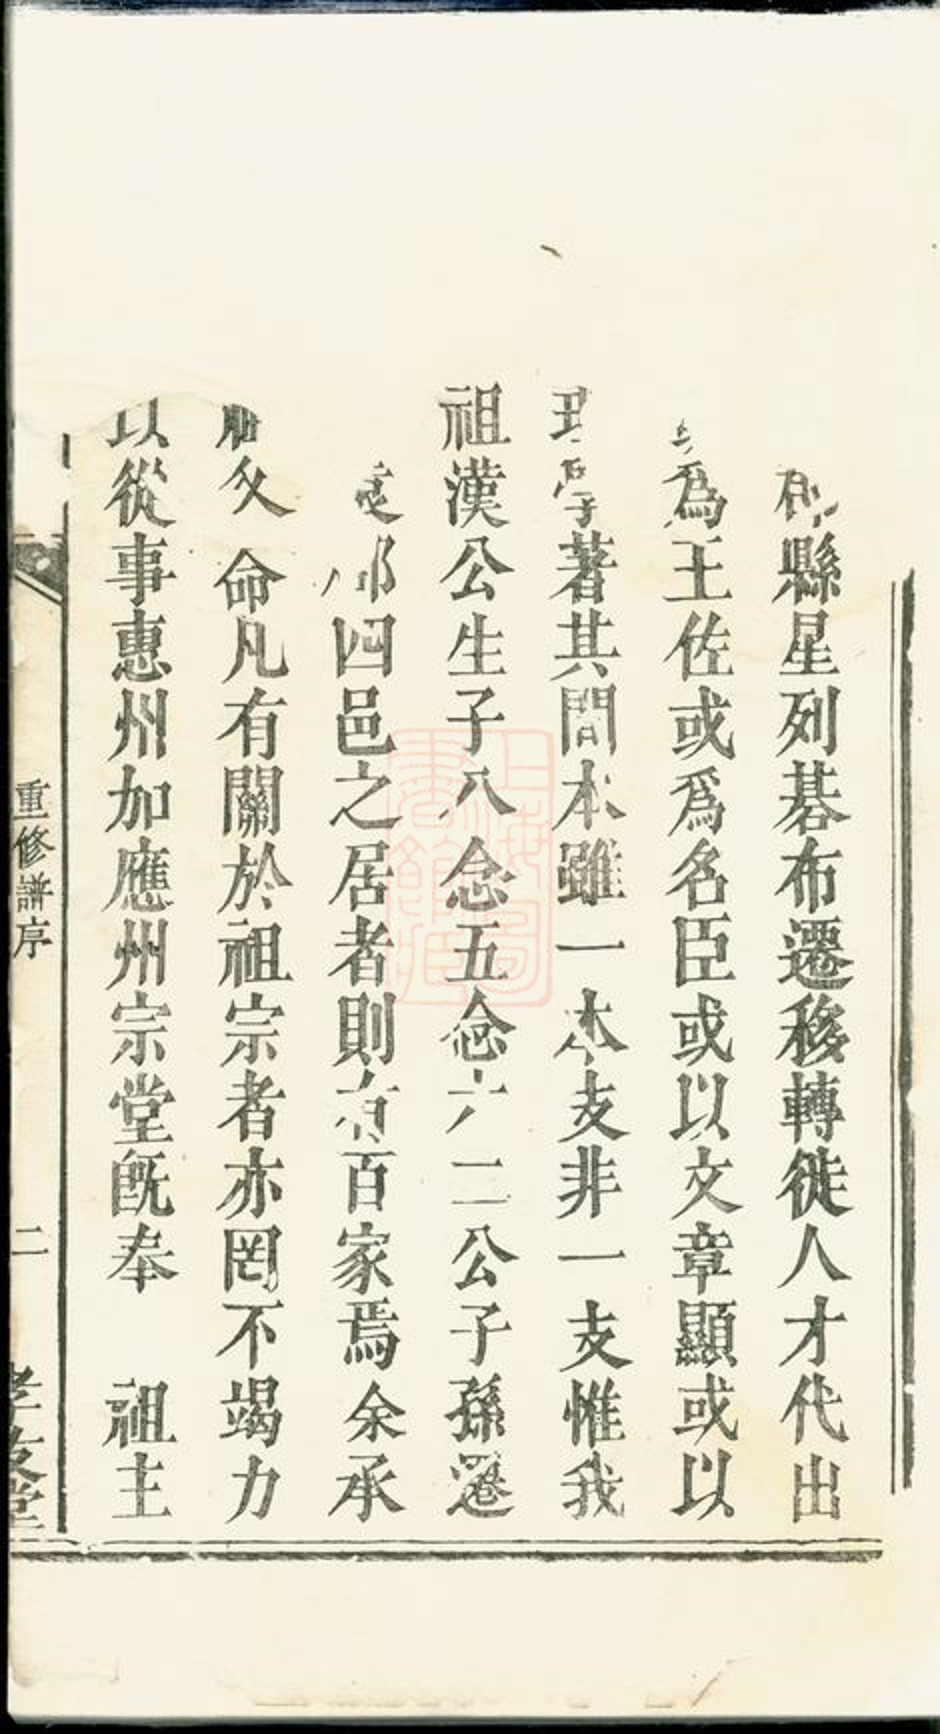 縣星列碁布遷移轉徙人才代出
為王佐或爲名臣或以文章顯或以
著其間本雖一本支非一支惟我
祖漢公生子八念五念六二公子孫遷
四邑之居者則有百家焉余承
父 命凡有關於祖宗者亦罔不竭力
以從事惠州加應州宗堂旣奉 祖主
重修譜序
二
孝友堂
上海圖書館藏